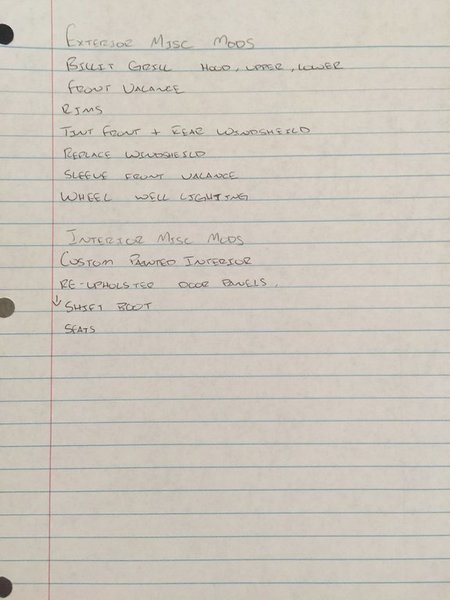 EXTERIOR MISC MODS
BILLIT GRILL HOOD, UPPER, LOWER
FRONT VALANCE
RIMS
TINT FRONT + REAR WINDSHEILD
REPLACE WINDSHEILD
SLEEVE FRONT VALANCE
WHEEL WELL LIGHTING
INTERIOR MISC MODS
CUSTOM PAINTED INTERIOR
RE-UPHOLSTER DOOR PANELS,
↓ SHIFT BOOT
SEATS